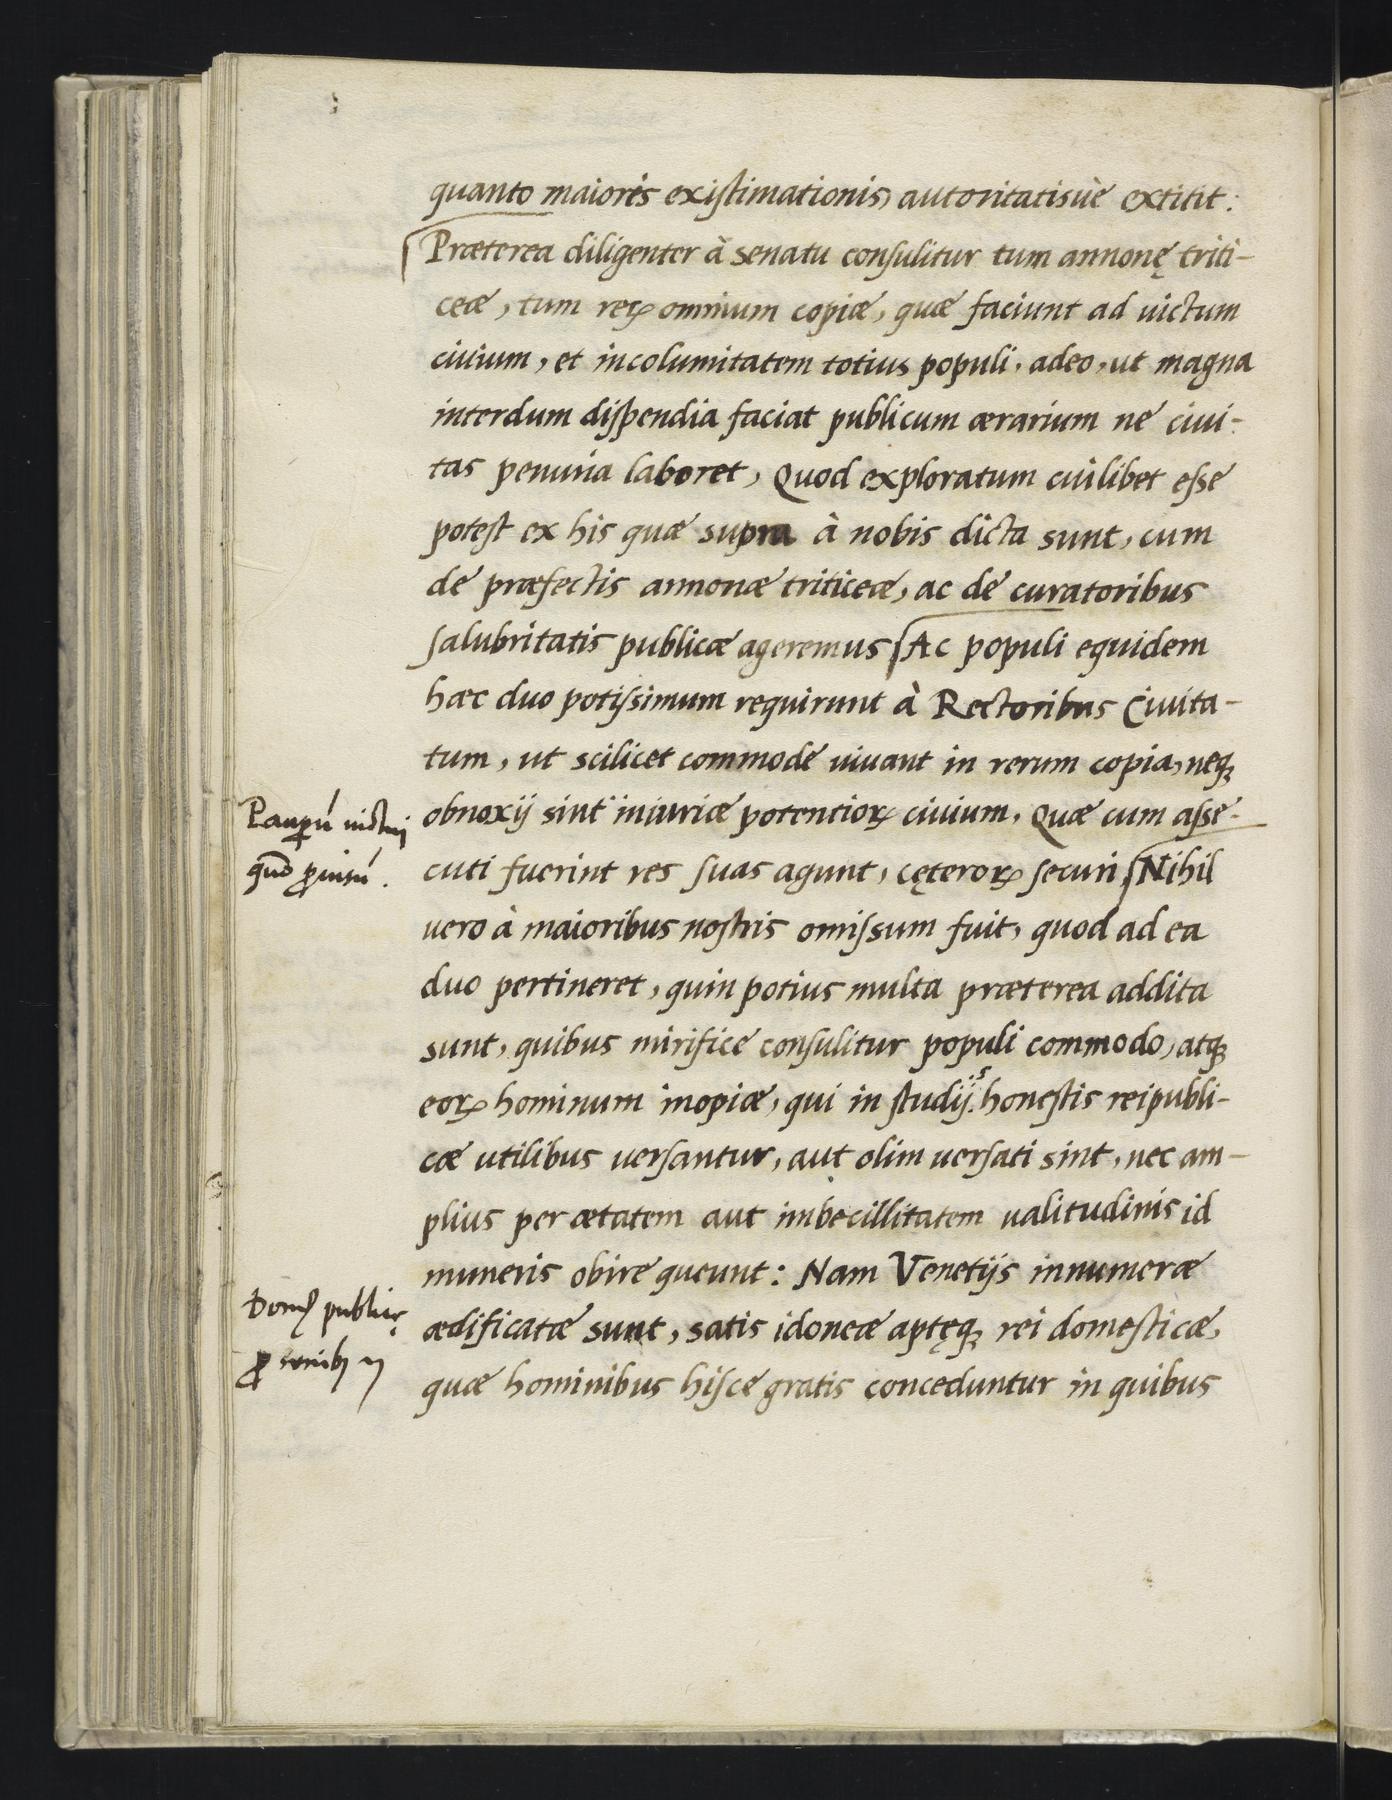 quanto maioris existimationis, autoritatisuè extitit:
Præterea diligenter à senatu consulitur tum annonę triti-
ceæ, tum rerꝝ omnium copiæ, quæ faciunt ad uictum
ciuium, et incolumitatem totius populi, adeo, ut magna
interdum dispendia faciat publicum ærarium ne ciui-
tas penuria laboret, Quod exploratum cuilibet esse
potest ex his quæ supra à nobis dicta sunt, cum
de præfectis annonæ triticeæ, ac de curatoribus
salubritatis publicæ ageremus [Ac populi equidem
hæc duo potissimum requirunt à Rectoribus Ciuita-
tum, ut scilicet commode uiuant in rerum copia, neqꝫ
Pauperũ uictui
obnoxij sint iniuriæ potentiorꝝ ciuium, Quæ cum asse-
quo ꝓuisũ.
cuti fuerint res suas agunt, cęterorꝝ securi [Nihil
uero à maioribus nostris omissum fuit, quod ad ea
duo pertineret, quin potius multa præterea addita
sunt, quibus mirifice consulitur populi commodo, atqꝫ
eorꝝ hominum inopiæ, qui in studijs honestis reipubli-
cæ utilibus uersantur, aut olim uersati sint, nec am-
plius per ætatem aut imbecillitatem ualitudinis id
muneris obire queunt: Nam Venetijs innumeræ
Domꝰ publicę
ædificatæ sunt, satis idoneæ aptęqꝫ rei domesticæ,
ꝓ senibꝫ
quæ hominibus hisce gratis conceduntur in quibus